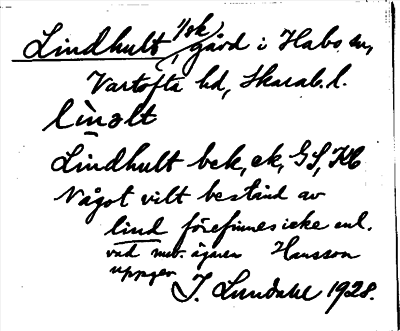 Lindhult, 1/sk, gård i Habo sn,
Vartofta hd, Skarab. l.
lìnəlt
Lindhult bek, ek, GS, KB
Något vilt bestånd av
lind förefinnes icke enl.
vad nuv. ägaren Hansson
uppger
J. Lundahl 1928.